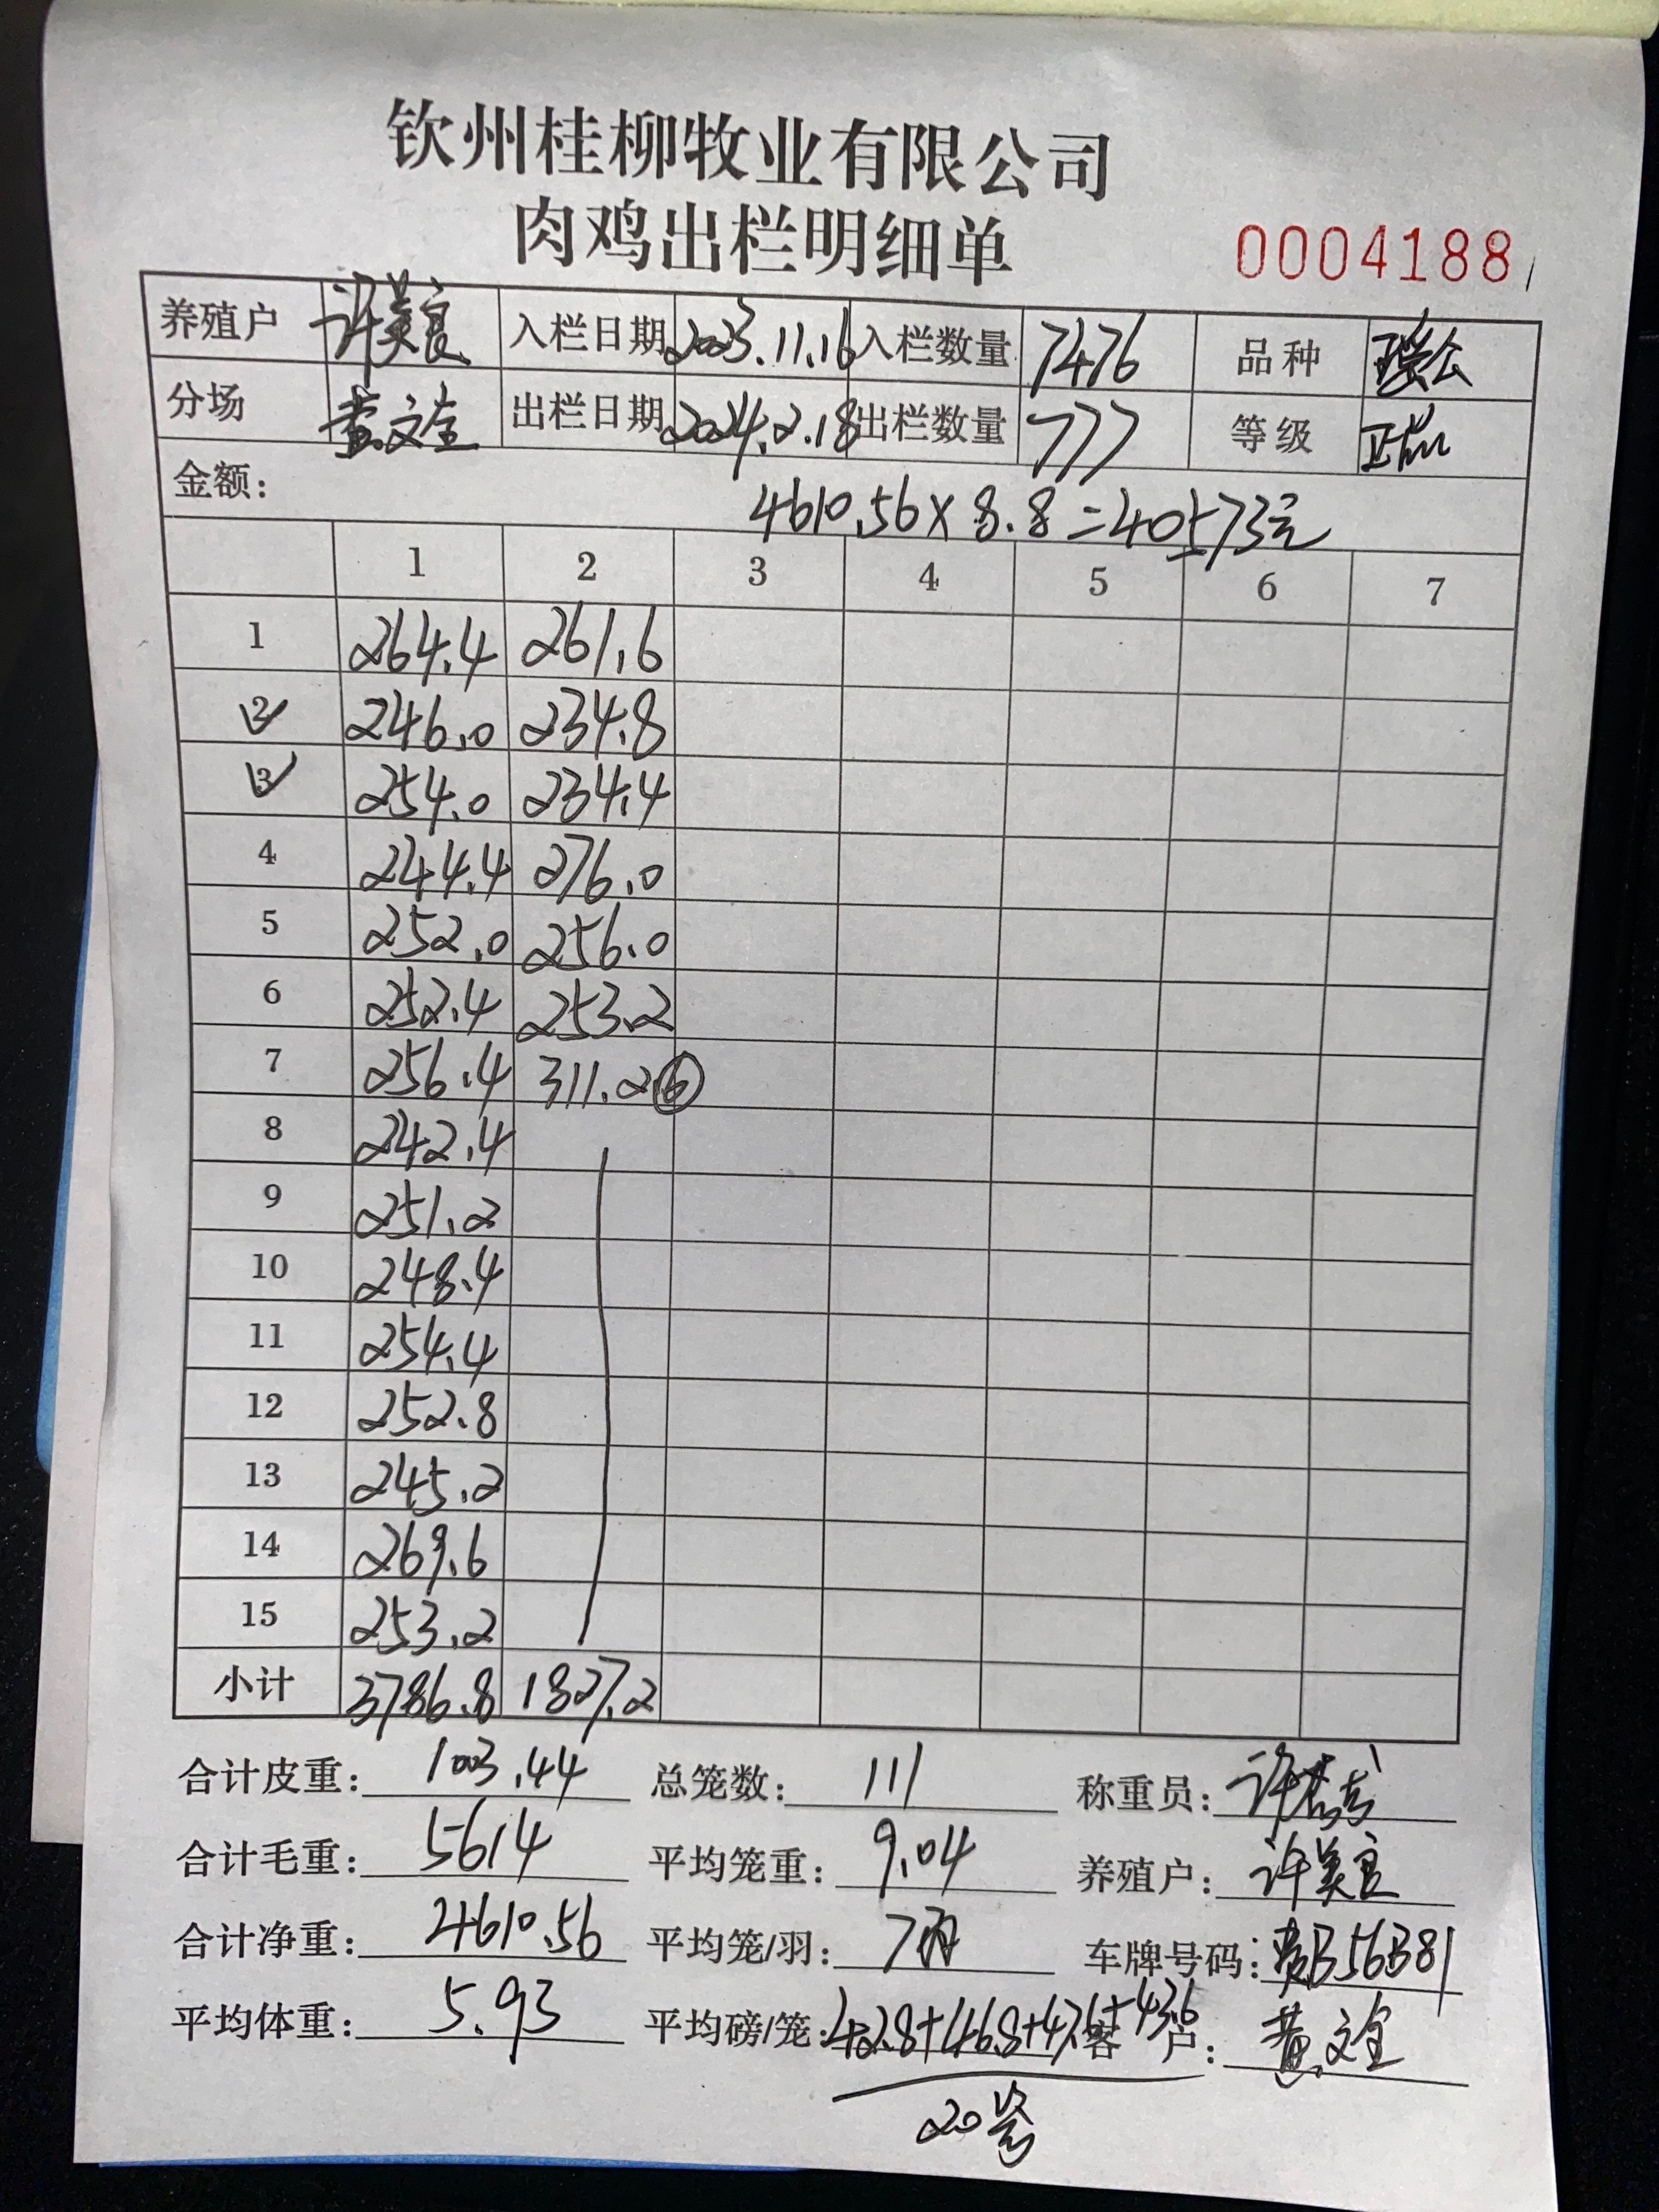 钦州桂柳牧业有限公司
肉鸡出栏明细单 0004188
养殖户 许美良 入栏日期 2023.11.16 入栏数量 7476 品种
分场 黄文全 出栏日期 2024.2.18 出栏数量 777 等级
金额: 4610.56×8.8=40573元
1 2 3 4 5 6 7
1 264.4 261.6
2 246.0 234.8
3 254.0 234.4
4 244.4 276.0
5 252.0 256.0
6 252.4 253.2
7 256.4 311.2 ⑥
8 242.4
9 251.2
10 248.4
11 254.4
12 252.8
13 245.2
14 269.6
15 253.2
小计 3786.8 1827.2
合计皮重: 1003.44 总笼数: 111 称重员:
合计毛重: 5614 平均笼重: 9.04 养殖户: 许美良
合计净重: 4610.56 平均笼/羽: 7羽 车牌号码: B56B81
平均体重: 5.93 平均磅/笼: 42.8+46.8+47.6+43.6 客户: 黄文全
20笼